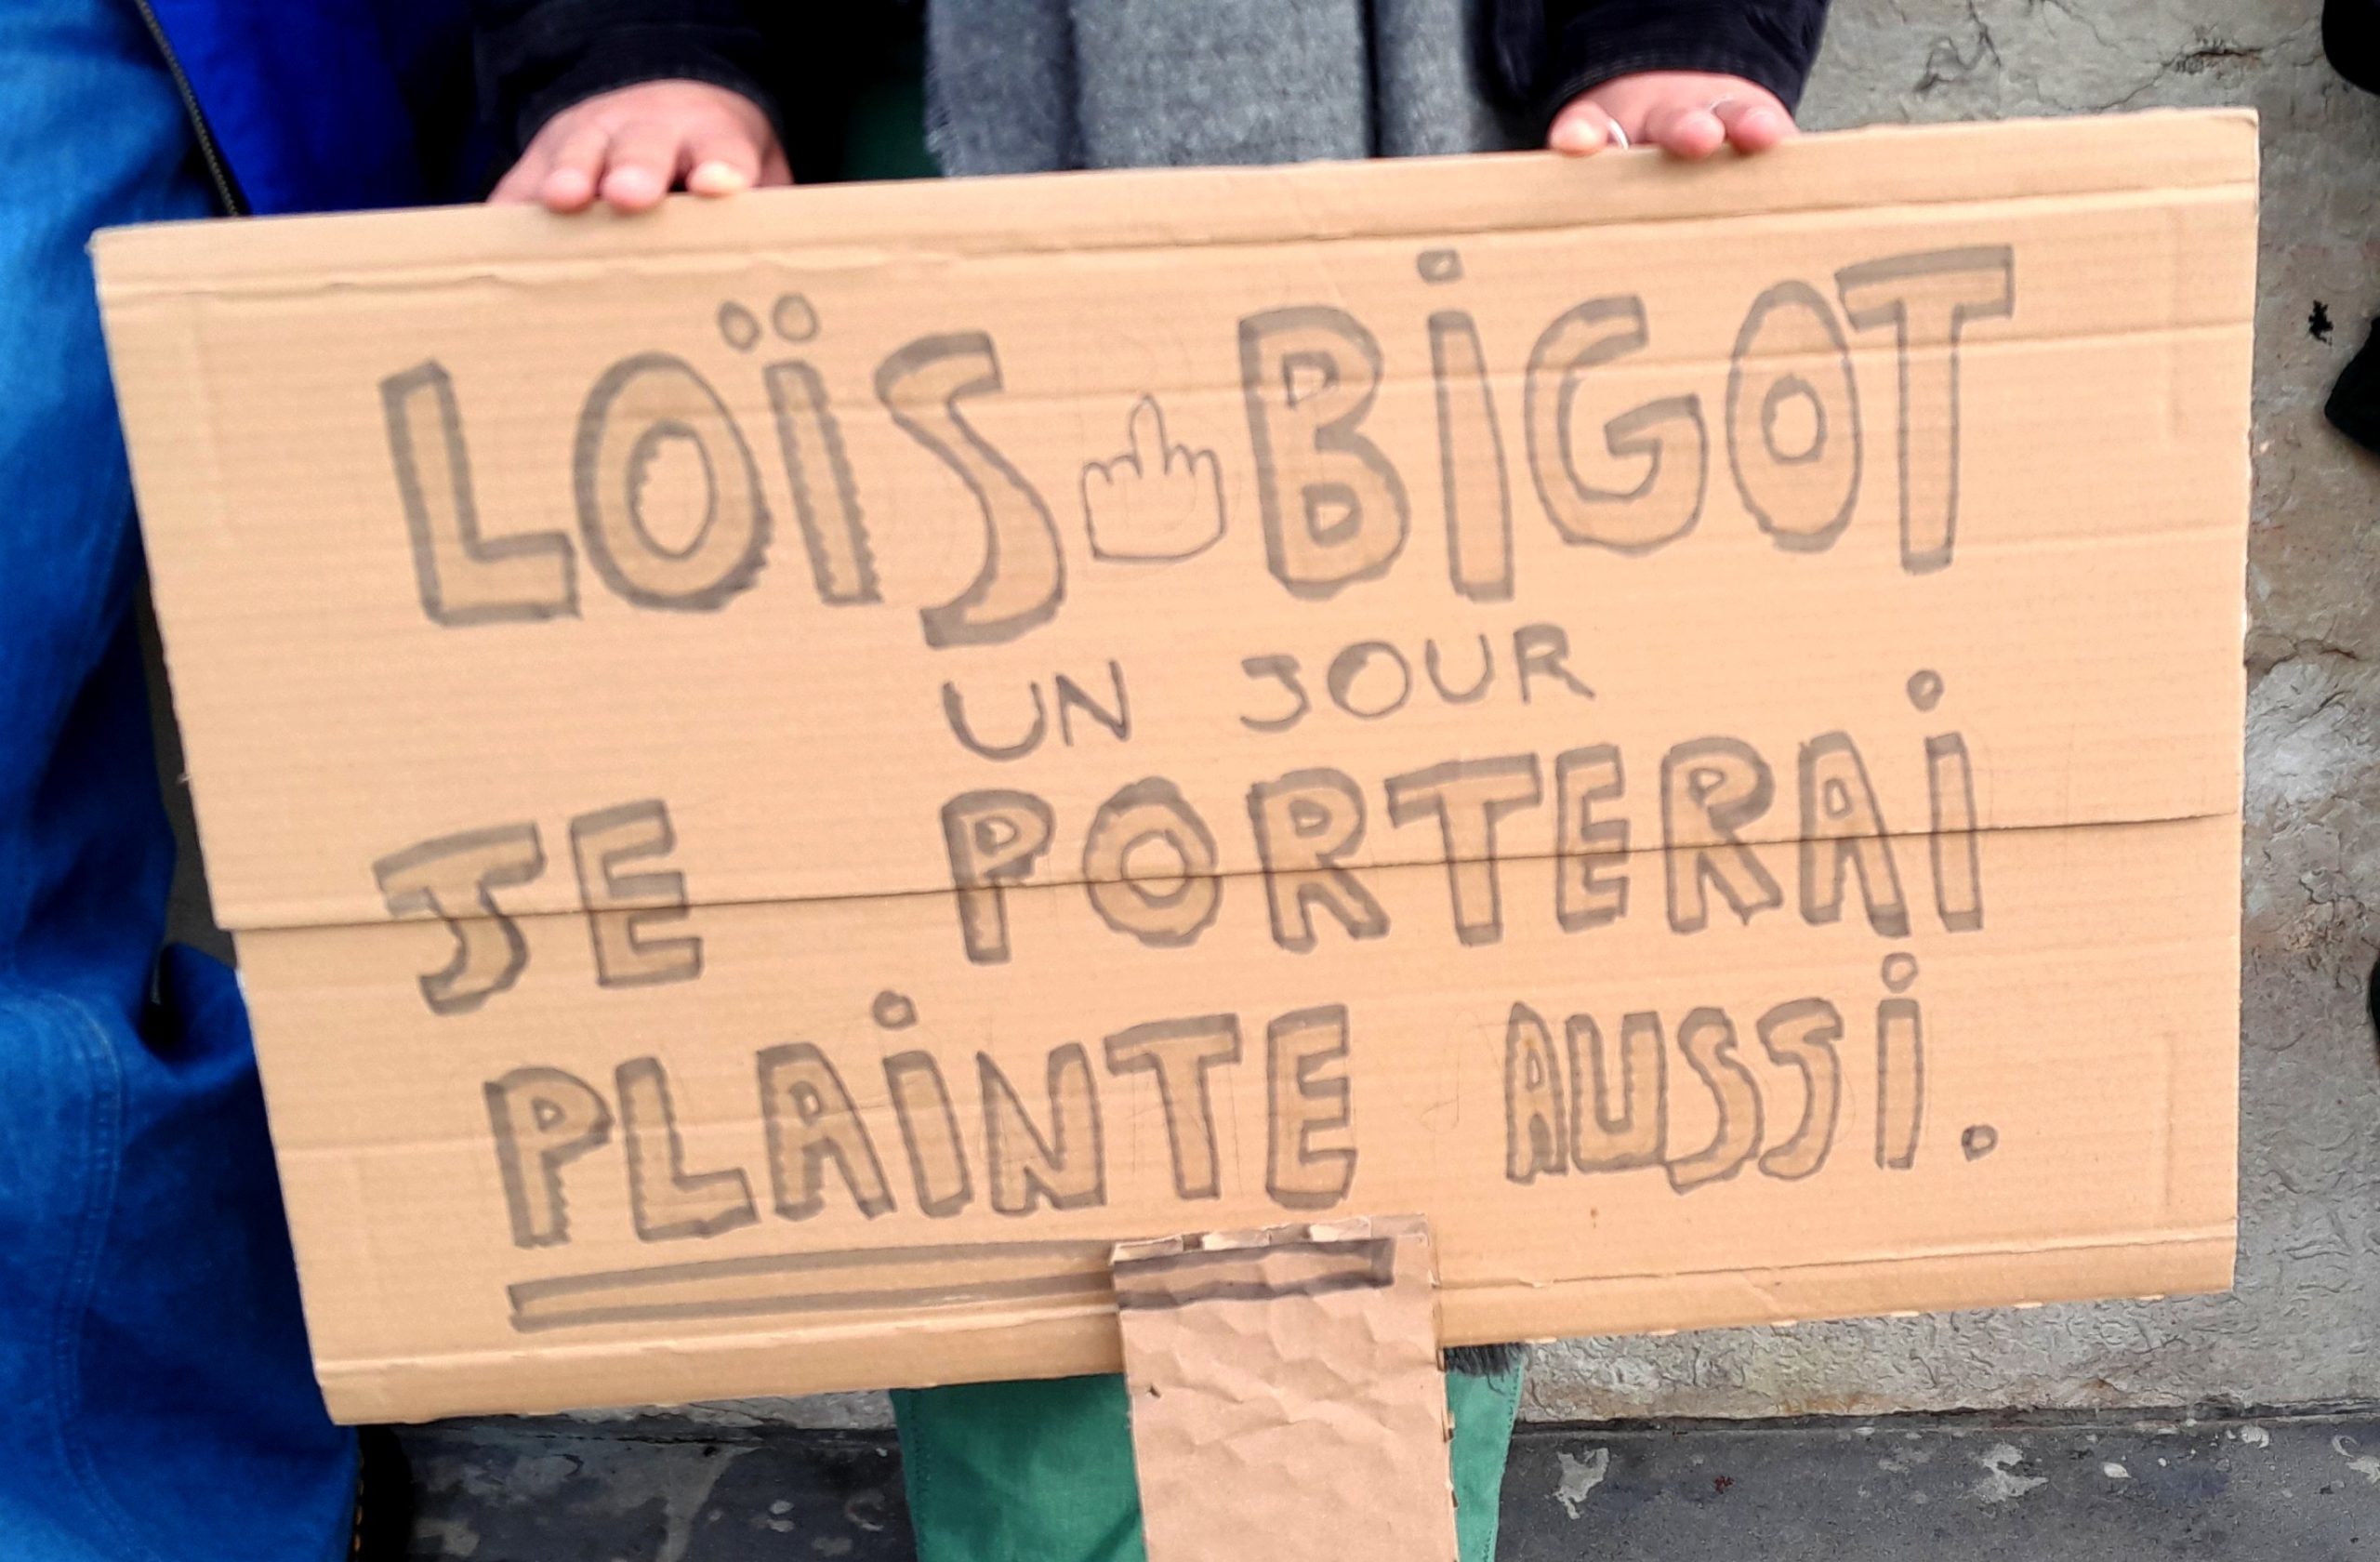 LOÏS BiGOT
UN JOUR
JE PORTERAi
PLAiNTE AUSSi.